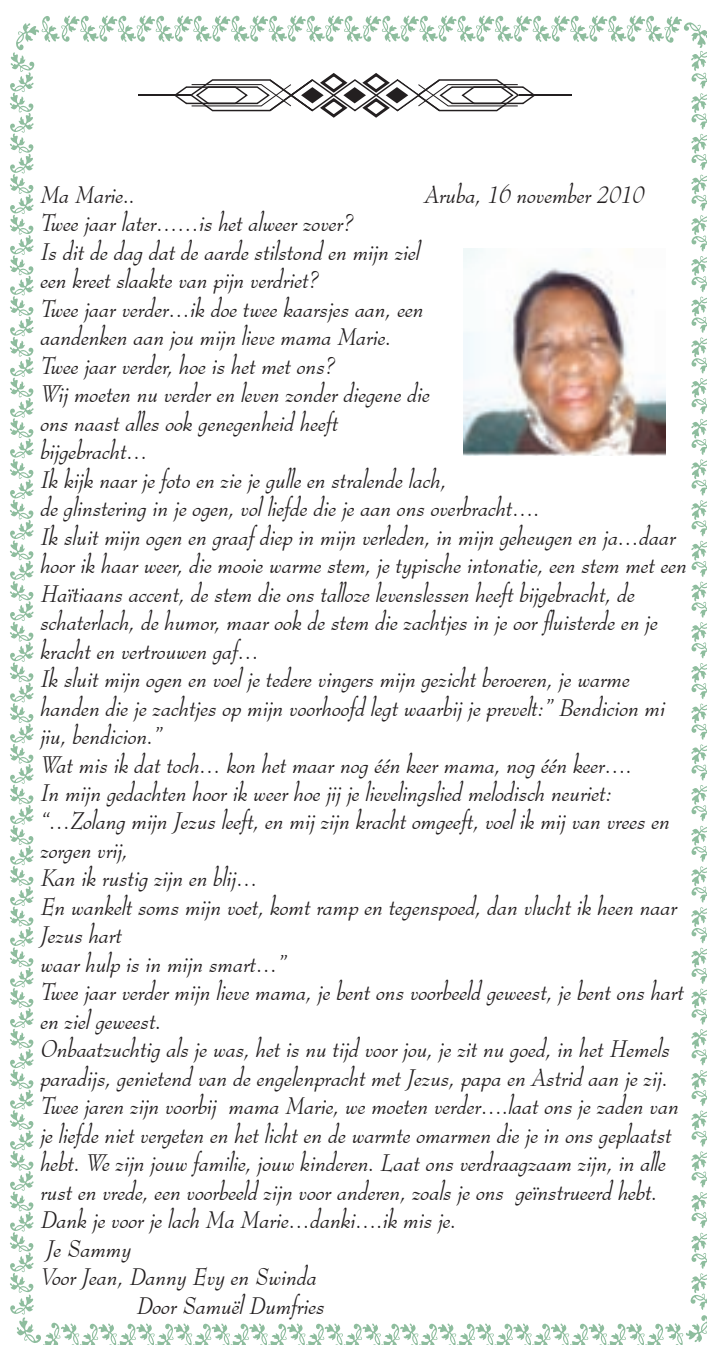 Ma Marie.. Aruba, 16 november 2010
Twee jaar later......is het alweer zover?
Is dit de dag dat de aarde stilstond en mijn ziel
een kreet slaakte van pijn verdriet?
Twee jaar verder...ik doe twee kaarsjes aan, een
aandenken aan jou mijn lieve mama Marie.
Twee jaar verder, hoe is het met ons?
Wij moeten nu verder en leven zonder diegene die
ons naast alles ook genegenheid heeft
bijgebracht...
Ik kijk naar je foto en zie je gulle en stralende lach,
de glinstering in je ogen, vol liefde die je aan ons overbracht....
Ik sluit mijn ogen en graaf diep in mijn verleden, in mijn geheugen en ja...daar
hoor ik haar weer, die mooie warme stem, je typische intonatie, een stem met een
Haïtiaans accent, de stem die ons talloze levenslessen heeft bijgebracht, de
schaterlach, de humor, maar ook de stem die zachtjes in je oor fluisterde en je
kracht en vertrouwen gaf...
Ik sluit mijn ogen en voel je tedere vingers mijn gezicht beroeren, je warme
handen die je zachtjes op mijn voorhoofd legt waarbij je prevelt:” Bendicion mi
jiu, bendicion.”
Wat mis ik dat toch... kon het maar nog één keer mama, nog één keer....
In mijn gedachten hoor ik weer hoe jij je lievelingslied melodisch neuriet:
“...Zolang mijn Jezus leeft, en mij zijn kracht omgeeft, voel ik mij van vrees en
zorgen vrij,
Kan ik rustig zijn en blij...
En wankelt soms mijn voet, komt ramp en tegenspoed, dan vlucht ik heen naar
Jezus hart
waar hulp is in mijn smart...”
Twee jaar verder mijn lieve mama, je bent ons voorbeeld geweest, je bent ons hart
en ziel geweest.
Onbaatzuchtig als je was, het is nu tijd voor jou, je zit nu goed, in het Hemels
paradijs, genietend van de engelenpracht met Jezus, papa en Astrid aan je zij.
Twee jaren zijn voorbij  mama Marie, we moeten verder....laat ons je zaden van
je liefde niet vergeten en het licht en de warmte omarmen die je in ons geplaatst
hebt. We zijn jouw familie, jouw kinderen. Laat ons verdraagzaam zijn, in alle
rust en vrede, een voorbeeld zijn voor anderen, zoals je ons  geïnstrueerd hebt.
Dank je voor je lach Ma Marie...danki....ik mis je.
Je Sammy
Voor Jean, Danny Evy en Swinda
Door Samuël Dumfries